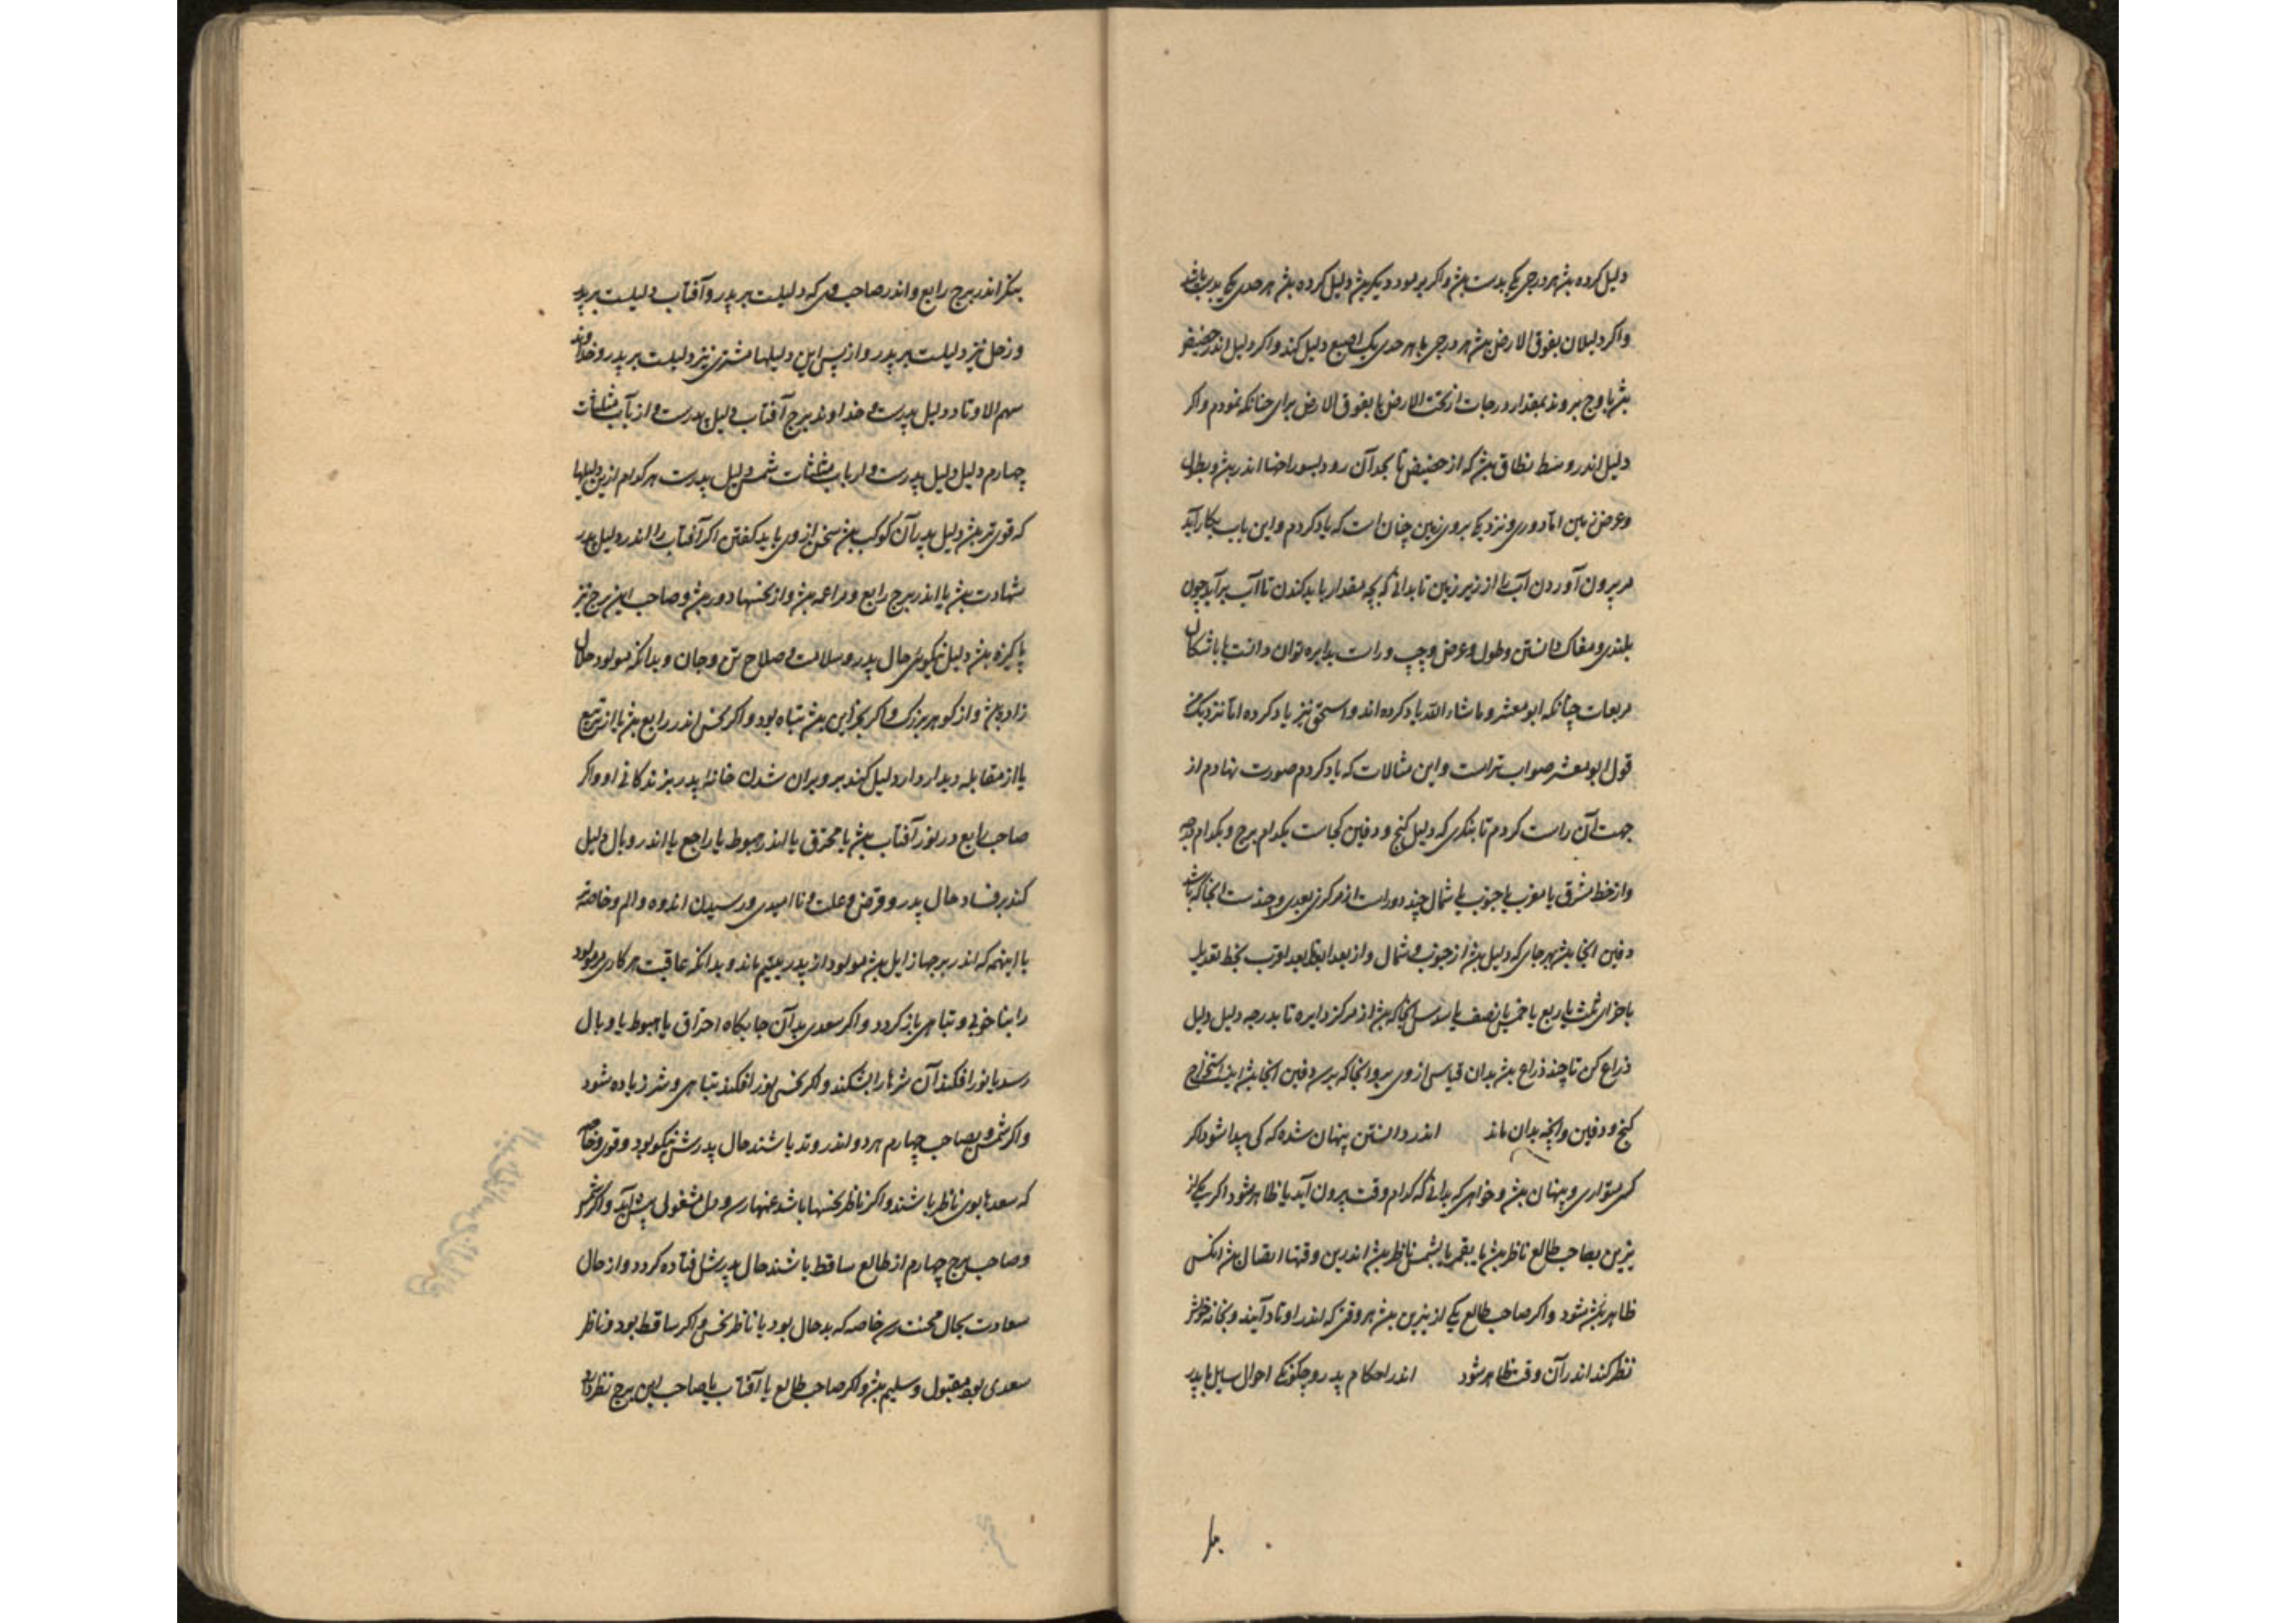 دلیل کرده بش هر درجی یکی بدست بش واکر بر بود دیکر بش دلیل کرده بش هر حدی یکی بدست باشد
واکر دلیلان بفوق الارض بش هر درجی یا هر حدی یک اصبع دلیل کند واکر دلیل اندر حضیض
بش یا اوج برو ند بمقدار درجات از تحت الارض یا بفوق الارض برای چنانکه نمودم واکر
دلیل اندر وسط نطاق بش که از حضیض تا بحد آن رود اندر بش و بطول
وعرض زمین اما دوری و نزدیکی بروی زمین چنان است که یاد کردم واین باب بکار آید
مر بیرون آوردن آب را از زیر زمین تا بدانی که بچه مقدار باید کندن تا آب برآید چون
بلندی ومغاک دانستن وطول وعرض وچپ وراست بدایره توان دانست یا باشکال
مربعات چنانکه ابو معشر وما شاء الله یاد کرده اند واسحق نیز یاد کرده اما نزدیک من
قول ابو معشر صواب تر است واین مثالات که یاد کردم صورت نهادم از
جهت آن راست کردم تا بنکری که دلیل کنج و دفین کجاست بکدام برج و بکدام درجه
واز خط مشرق یا مغرب یا جنوب یا شمال چند دور است از مرکزی بعدی وچندست آنجا که باشد
دفین آنجا بش بهر جای که دلیل بش از جنوب و شمال واز بعد ابعد یا بعد اقرب بخط تعدیل
باجزای ثلث یا ربع یا خمس یا نصف یا سدس آنجا که بش از مرکز دایره تا بدرجه دلیل دلیل
ذراع کن تا چند ذراع بش بدان قیاس از وی برو آنجا که برسی دفین آنجا بش اینست استخراج
کنج و دفین وآنچه بدان ماند اندر دانستن پنهان شده که کی پیدا شود اکر
کسی متواری و پنهان بش و خواهی که بدانی که کدام وقت بیرون آید یا ظاهر شود اکر یکی از
نیرین بصاحب طالع ناظر بش یا بقمر یا بشمس ناظر بش اندرین وقتها اتصال بش آنکس
ظاهر بش شود واکر صاحب طالع یکی از نیرین بش هر وقتی که اندر اوتاد آیند وبخانه خویش
نظر کند اندر آن وقت ظاهر شود اندر احکام پدر وچکونکی احوال سایل با پدر
بنکر اندر برج رابع واندر صاحب وی که دلیلست بر پدر وآفتاب دلیلست بر پدر
وزحل نیز دلیلست بر پدر واز پس این دلیلها مشتری نیز دلیلست بر پدر وخداوند
سهم الاوتاد دلیل پدرست و خداوند برج آفتاب دلیل پدرست و ارباب مثلثات
چهارم دلیل دلیل پدرست و ارباب مثلثات شمس دلیل پدرست هر کدام ازین دلیلها
که قوی تر بش دلیل پدر آن کوکب بش سخن از وی باید کفتن اکر آفتاب را اندر دلیل پدر
شهادت بش یا اندر برج رابع ومزاعمه بش واز نحسها دور بش وصاحب این برج نیز
پاکیزه بش دلیل نیکویی حال پدر وسلامت و صلاح تن وجان وبدانکه مولود حلال
زاده بش واز کوهر بزرک واکر بجز این بش تباه بود واکر نحس اندر رابع بش یا از تربیع
یا از مقابله دیدار دارد دلیل کند بر ویران شدن خانه پدر بزندکانی او واکر
صاحب رابع در نور آفتاب بش یا محترق یا اندر هبوط یا راجع یا اندر وبال دلیل
کند بر فساد حال پدر و قرض و علت و ناامیدی ورسیدن اندوه والم وخاصه
با اینهمه که اندر برجها زایل بش مولود از پدر یتیم ماند وبدانکه عاقبت هر کاری مولود
را بناخوبی وتباهی باز کردد واکر سعدی بدآن جایکاه احتراق یا هبوط یا وبال
رسد یا نور افکند آن شرها را بشکند واکر نحس نور افکند تباهی وشر زیاده شود
واکر شمس و صاحب چهارم هر دو اندر وتد باشند حال پدرش نیکو بود وقوی وخاصه
که سعدها بوی ناظر باشند واکر ناظر نحسها باشد غمها رسد ودل مشغولی پیش آید واکر شمس
وصاحب برج چهارم از طالع ساقط باشند حال پدرش افتاده کردد واز حال
سعادت بحال محنت رسد خاصه که بدحال بود یا ناظر نحس واکر ساقط بود وناظر
سعدی بود مقبول وسلیم بش واکر صاحب طالع یا آفتاب یا صاحب این برج نظر دارد